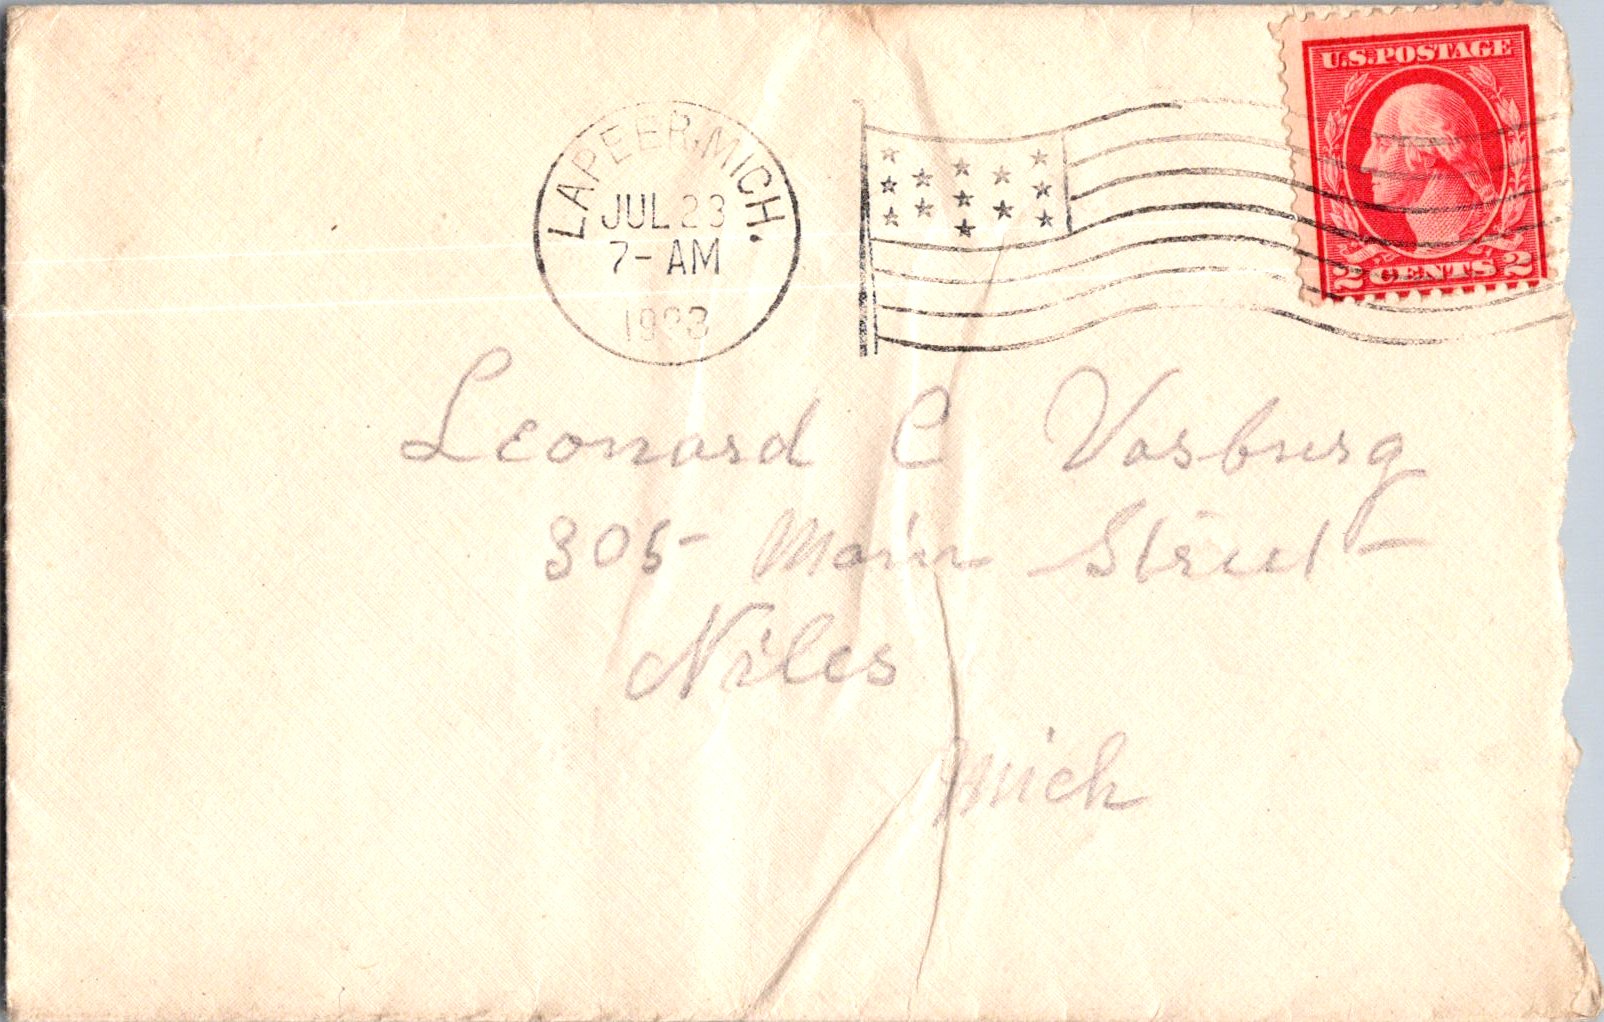 U.S. POSTAGE
LAPEER, MICH.
JUL 23
7-AM
2 CENTS 2
Leonard C Vosburg
305 Main Street
Niles
Mich